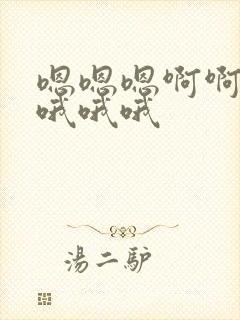 嗯嗯嗯啊啊
哦哦哦
湯二驴